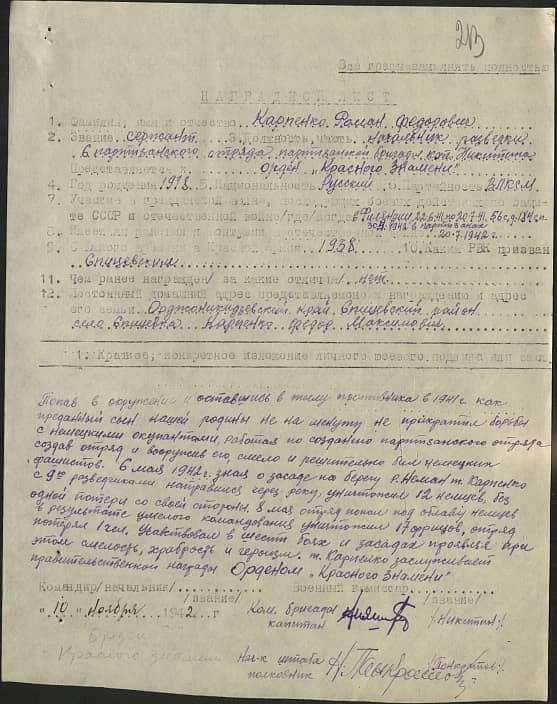 213
Все графы заполнять полностью
НАГРАДНОЙ ЛИСТ
1. Фамилия, имя и отчество Карпенко Роман Федорович
2. Звание сержант 3. Должность, часть начальник разведки
6 партизанского отряда партизанской бригады кап. Никитина
Представляется к ордену "Красного Знамени"
4. Год рождения 1918 5. Национальность Русский 6. Партийность ВЛКСМ
7. Участие в гражданской войне, боевых действиях по защите
те СССР и отечественной войне/где/когда
20.7.1942 г.
8. Имеет ли ранения и контузии в отечественной
9. С какого времени в Красной Армии 1938 10. Каким РВК призван
Спицевским
11. Чем ранее награжден/за какие отличия/ нет
12. Постоянный домашний адрес представляемого к награждению и адрес
его семьи Орджоникидзевский край, Спицевский район
село Карпенко Федор Максимович
1. Краткое, конкретное изложение личного боевого подвига или заслуг
Попав в окружение и оставшись в тылу противника в 1941 г. как
преданный сын нашей родины не на минуту не прикратил борьбы
с немецкими окупантами, работая по созданию партизанского отряда
создав отряд и вооружив его, смело и решительно бил немецких
фашистов. 6 мая 1942 г. зная о засаде на берегу р. Неман т. Карпенко
с 9ю разведчиками направился через реку, уничтожил 12 немцев, без
одной потери со своей стороны. 8 мая отряд попал под облаву немцев
в результате умелого командования уничтожил 17 фрицев, отряд
потерял 1 чел. Участвовал в шести боях и засадах проявляя при
этом смелость, храбрость и героизм. т. Карпенко заслуживает
правительственной награды Орденом "Красного Знамени"
Командир/начальник/ Военный комиссар
/звание/ /звание/
"10" ноября 1942 г Ком. бригады капитан /Никитин/
Красного знамени
Нач-к штаба
полковник